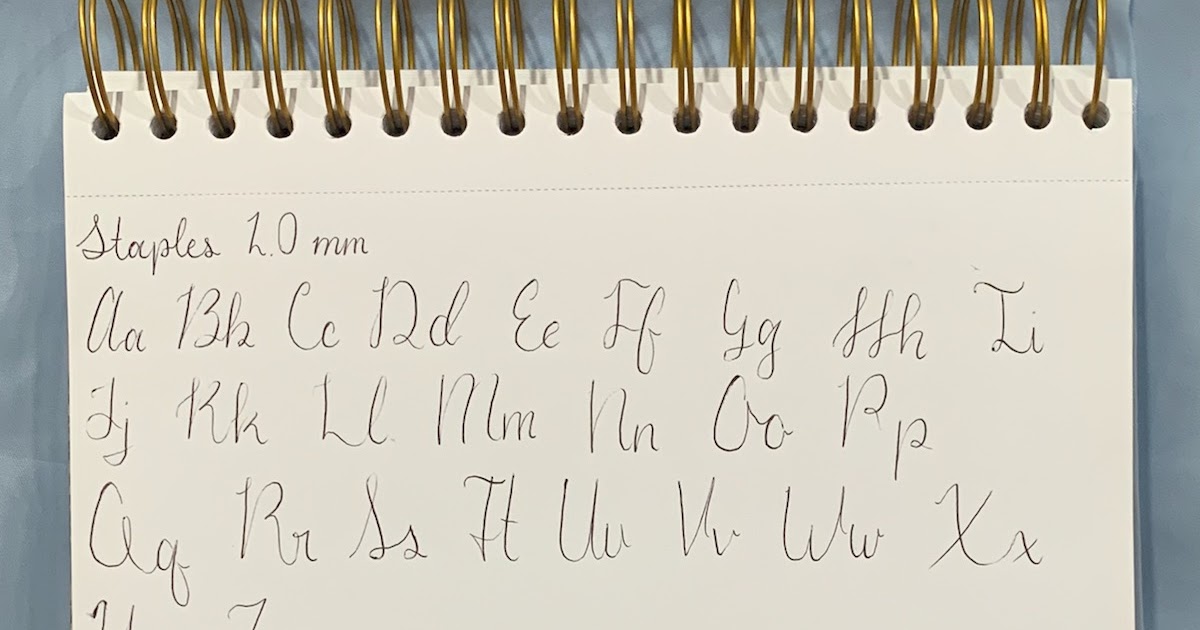 Staples 1.0 mm
Aa Bb Cc Dd Ee Ff Gg Hh Ii
Jj Kk Ll Mm Nn Oo Pp
Qq Rr Ss Tt Uu Vv Ww Xx